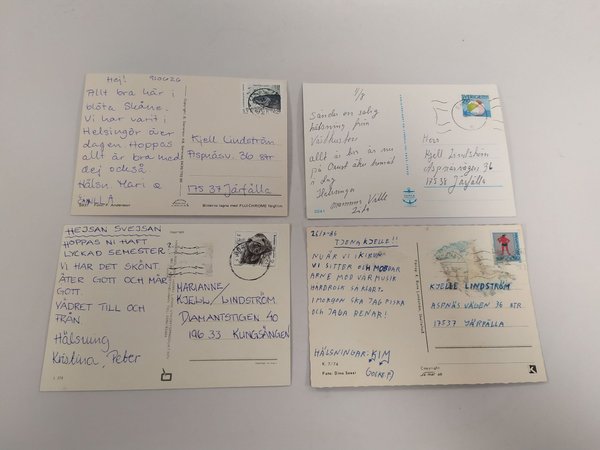 Hej! 910626
Allt bra här i
blöta Skåne.
Vi har varit i
Helsingör över
dagen. Hoppas
allt är bra med
dej också
Hälsn Mari &
Kjell Lindström
Aspnäsv. 36 8tr
175 37 Järfälla
1/8
Sänder en solig
hälsning från
Västkusten
allt är bra är nu
på Orust åker hemåt
i dag
Hälsningar
mamma Valle
SVERIGE
Herr
Kjell Lindström
Aspnäsvägen 36
175 38 Järfälla
HEJSAN SVEJSAN
HOPPAS NI HAFT
LYCKAD SEMESTER?
VI HAR DET SKÖNT.
ÄTER GOTT OCH MÅR
GOTT.
VÄDRET TILL OCH
FRÅN.
Hälsning
Kristina, Peter
MARIANNE/
KJELL/ LINDSTRÖM
DIAMANTSTIGEN 40
196 33 KUNGSÄNGEN
TJENA KJELLE!!
NU ÄR VI I KIRUNA
VI SITTER OCH MODDAR
ARNE MOD VAR MUSIK
HARDROCK SÅ KLART.
I MORGON SKA JAG FISKA
OCH JAGA RENAR!
HÄLSNINGAR: KIM
K 7/76
Foto: Dino Sassi
KJELLE LINDSTRÖM
ASPNÄS VÄGEN 36 8TR
17537 JÄRFÄLLA
Copyright
K